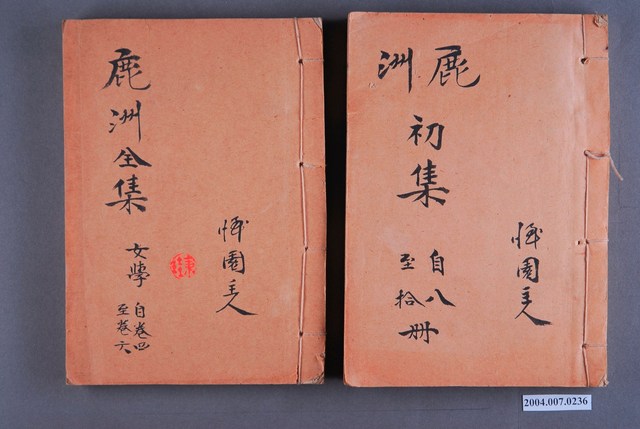 鹿洲全集
女學
自卷四
至卷六
園主人
鹿洲
初集
自八
至拾
冊
園主人
2004.007.0236